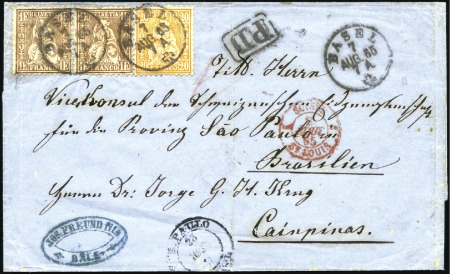 BASEL
7
AUG 65
1 A
P.D.
Titl. Herrn
Viceconsul der Schweizerischen Eidgenossenschaft
für die Provinz Sao Paulo in
Brasilien
Herrn Dr: Jorge G. H. Krug
Campinas.
JOS. FREUND FILS
BÂLE
ST LOUIS
1 FRANCO 1